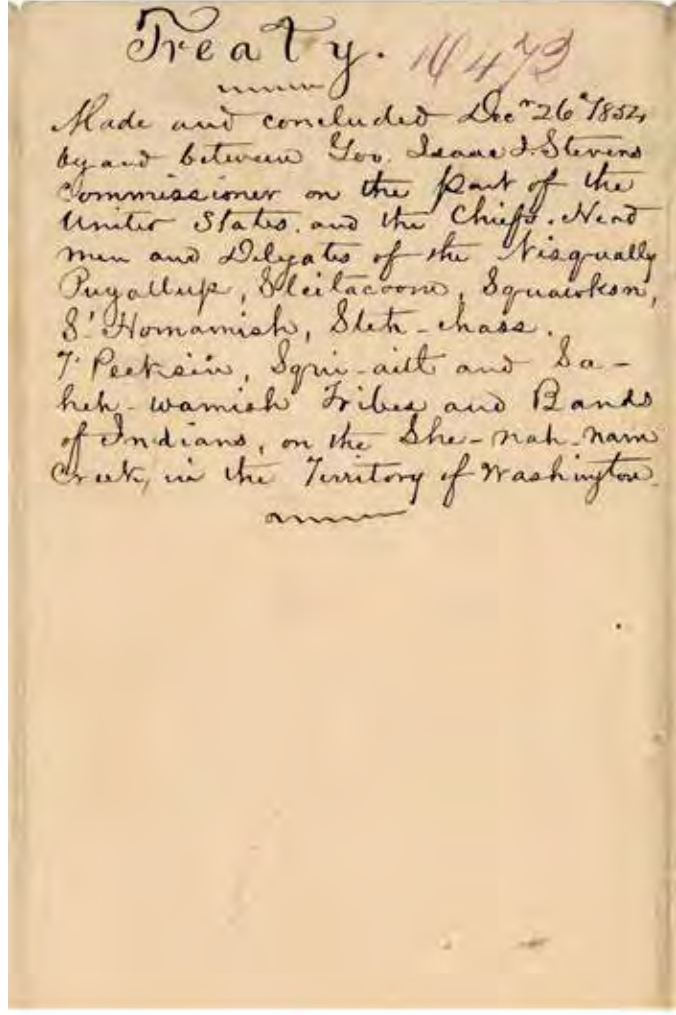 Treaty.
10473
Made and concluded Decr 26th 1854,
by and between Gov. Isaac I. Stevens
Commissioner on the part of the
United States, and the Chiefs, Head
men and Delegates of the Nisqually
Puyallup, Steilacoom, Squawksin,
S'Homamish, Steh-chass.
T'Peeksin, Squi-aitl and Sa-
heh-wamish Tribes and Bands
of Indians, on the She-nah-nam
Creek, in the Territory of Washington.